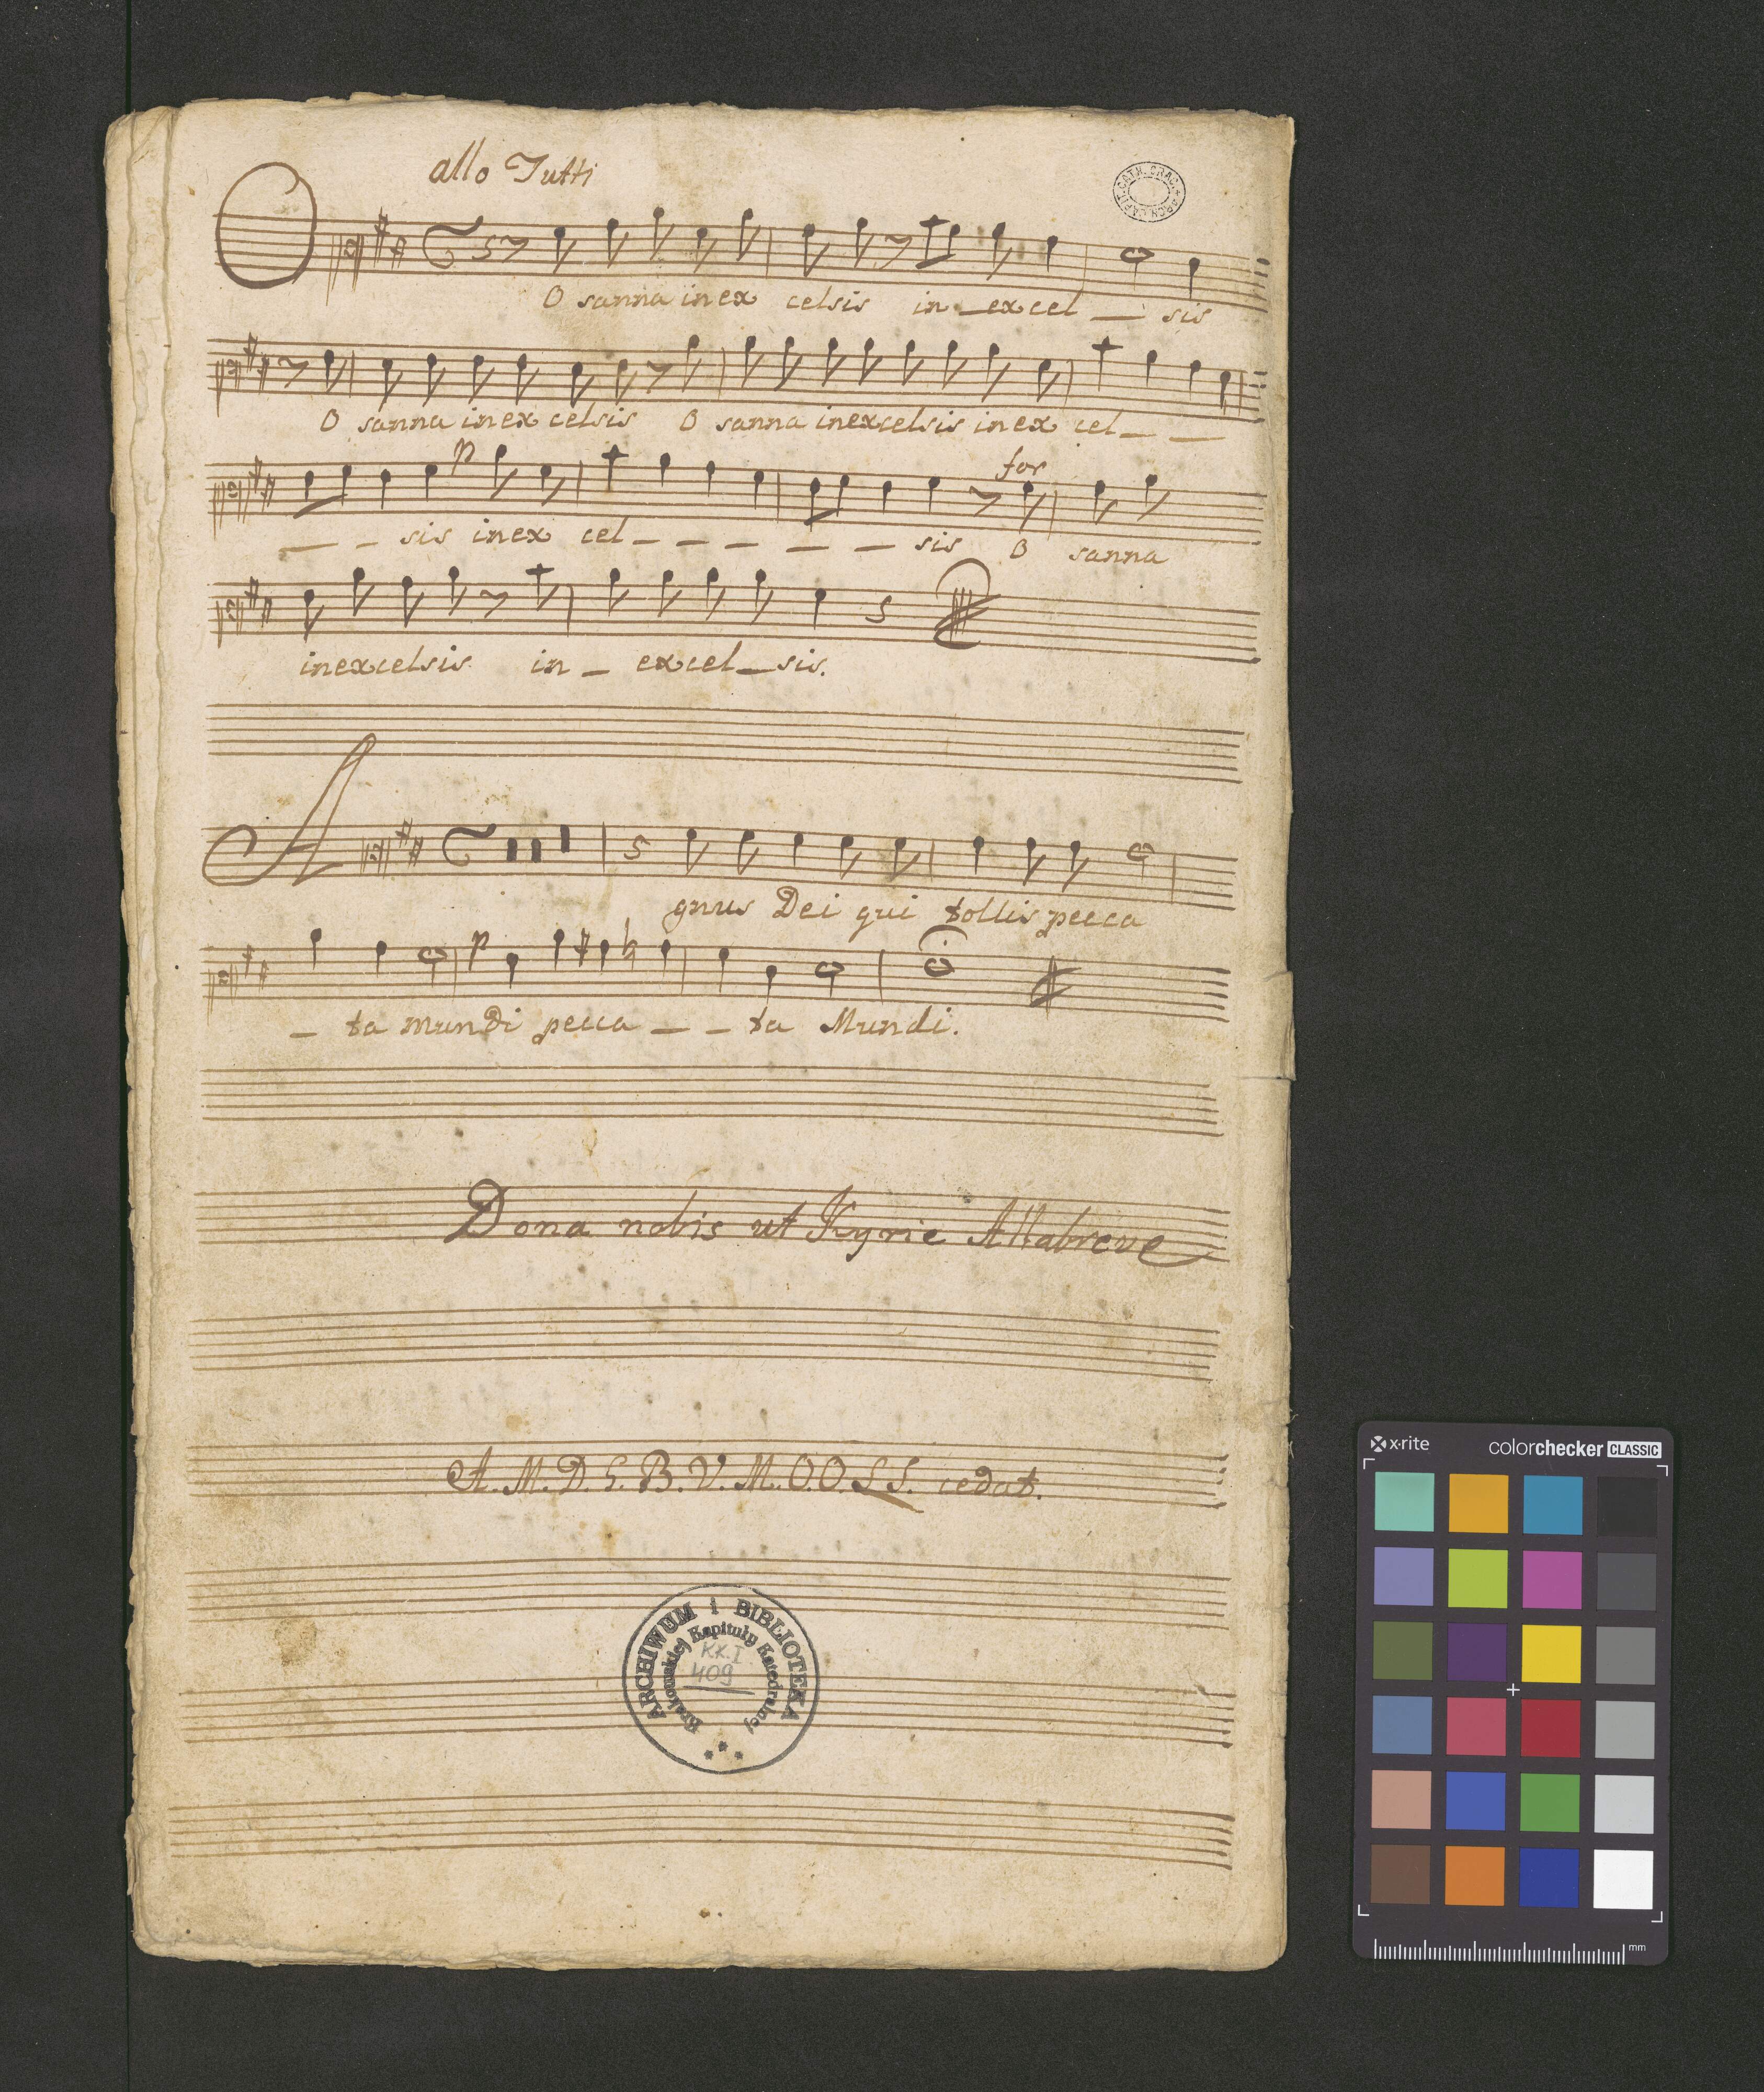 allo Tutti
CAPIT. CATH. CRAC. ARCH.
O sanna in ex celsis in _ excel _ sis
O sanna in ex celsis O sanna inexcelsis in ex cel _ _
p for
_ _ sis inex cel _ _ _ _ _ sis O sanna
inexcelsis in _ excel _ sis.
A
gnus Dei qui tollis pecca
p
_ ta mundi pecca _ _ ta Mundi.
Dona nobis ut Kyrie Allabreve
A. M. D. G. B. V. M. O. O. S S. cedat.
ARCHIWUM i BIBLIOTEKA
Krakowskiej Kapituły Katedralnej
KK.I
409
x-rite colorchecker CLASSIC
mm